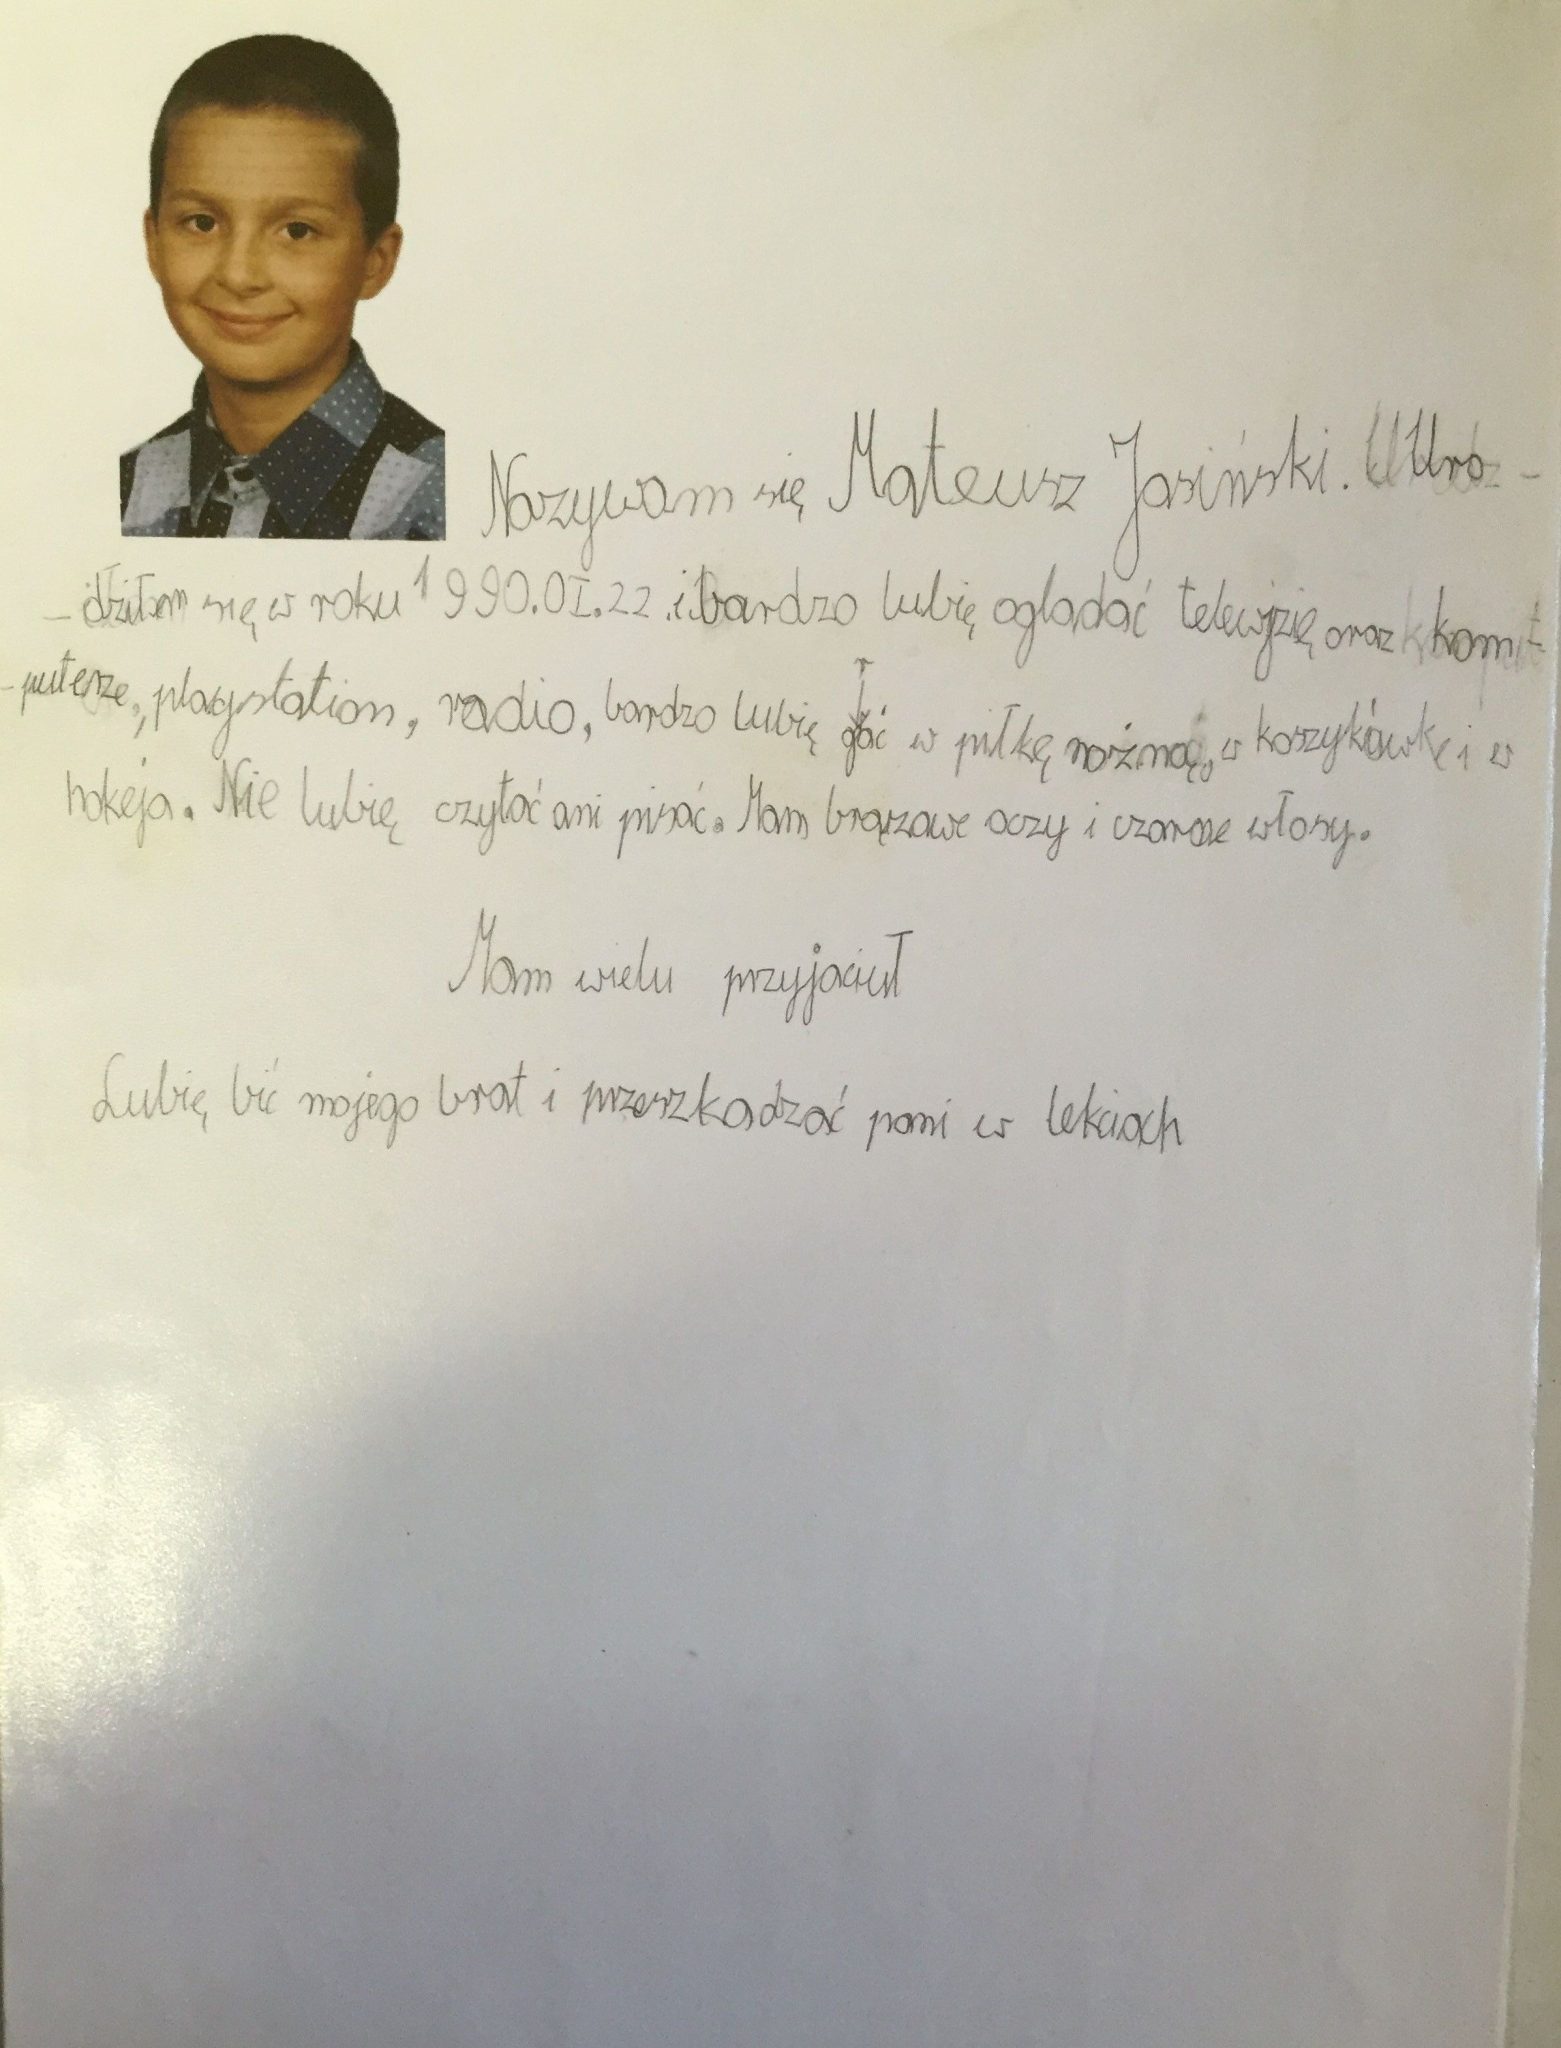 Nazywam się Mateusz Jasiński. Uro-
-dziłem się w roku 1990.01.22. i bardzo lubię oglądać telewjzię oraz kom-
-puterze, playstation, radio, bardzo lubię grać w piłkę nożną, w koszykówkę i w
hokeja. Nie lubię czytać ani pisać. Mam brązowe oczy i czarne włosy.
Mam wielu przyjaciuł
Lubię bić mojego brat i przeszkadzać pani w lekciach